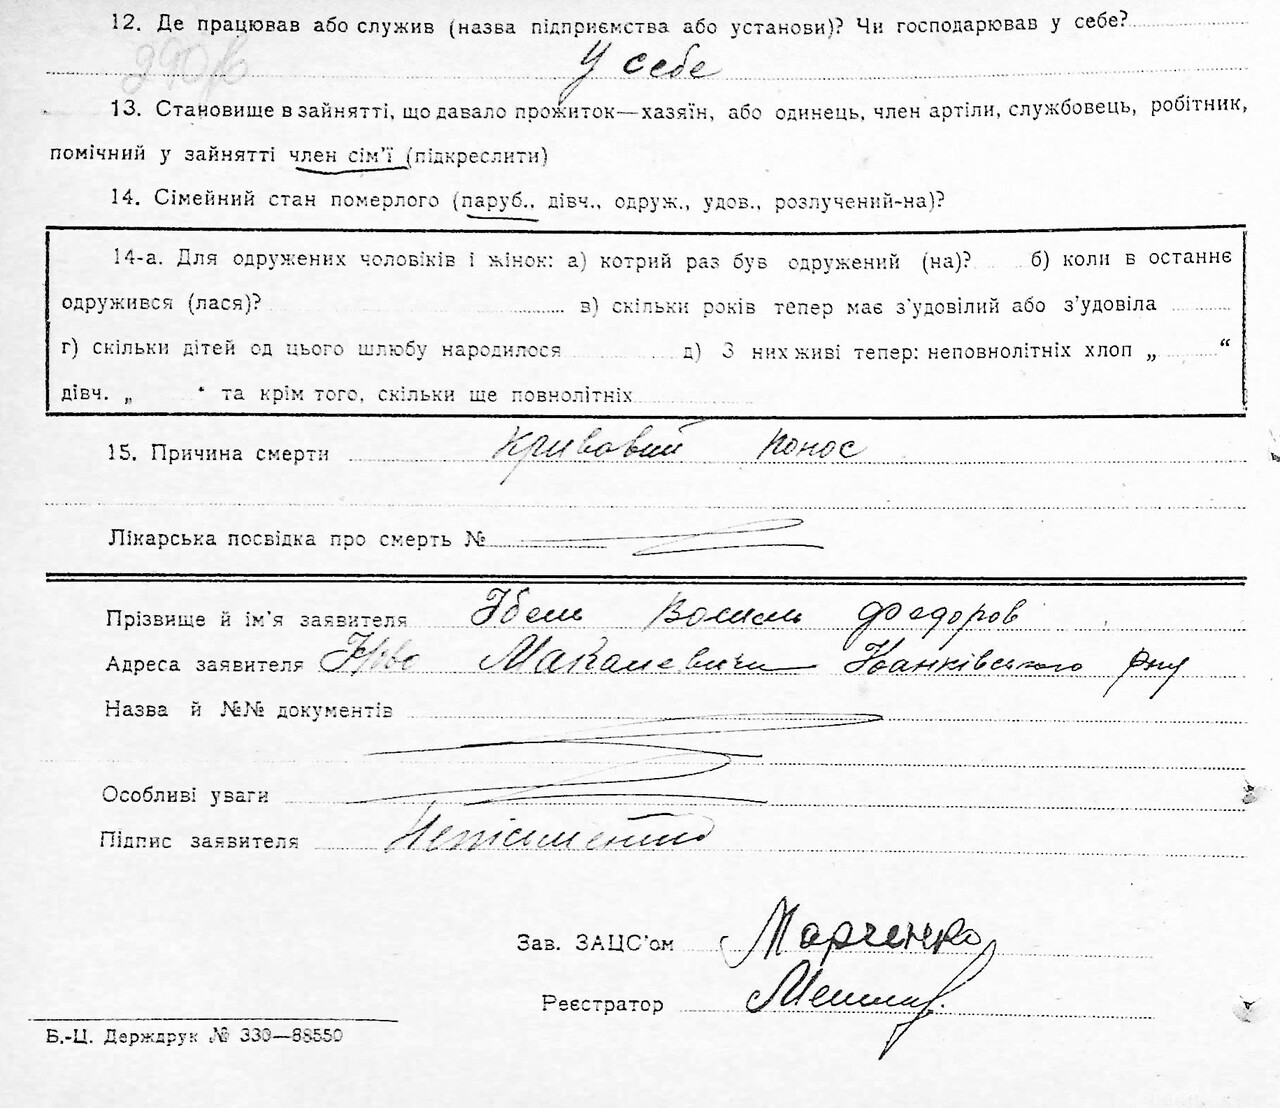 12. Де працював або служив (назва підприємства або установи)? Чи господарював у себе?
У себе
13. Становище в зайнятті, що давало прожиток—хазяїн, або одинець, член артіли, службовець, робітник,
помічний у зайнятті член сім'ї (підкреслити)
14. Сімейний стан померлого (паруб., дівч., одруж., удов., розлучений-на)?
14-а. Для одружених чоловіків і жінок: а) котрий раз був одружений (на)? б) коли в останнє
одружився (лася)? в) скільки років тепер має з'удовілий або з'удовіла
г) скільки дітей од цього шлюбу народилося д) З них живі тепер: неповнолітніх хлоп „ “
дівч. „ “ та крім того, скільки ще повнолітніх
15. Причина смерти Кривавий понос
Лікарська посвідка про смерть №
Прізвище й ім'я заявителя Федоров
Адреса заявителя Макалевичи Іванківського рну
Назва й №№ документів
Особливі уваги
Підпис заявителя Неписьменний
Зав. ЗАЦС'ом Марченко
Реєстратор
Б.-Ц. Держдрук № 330—88550